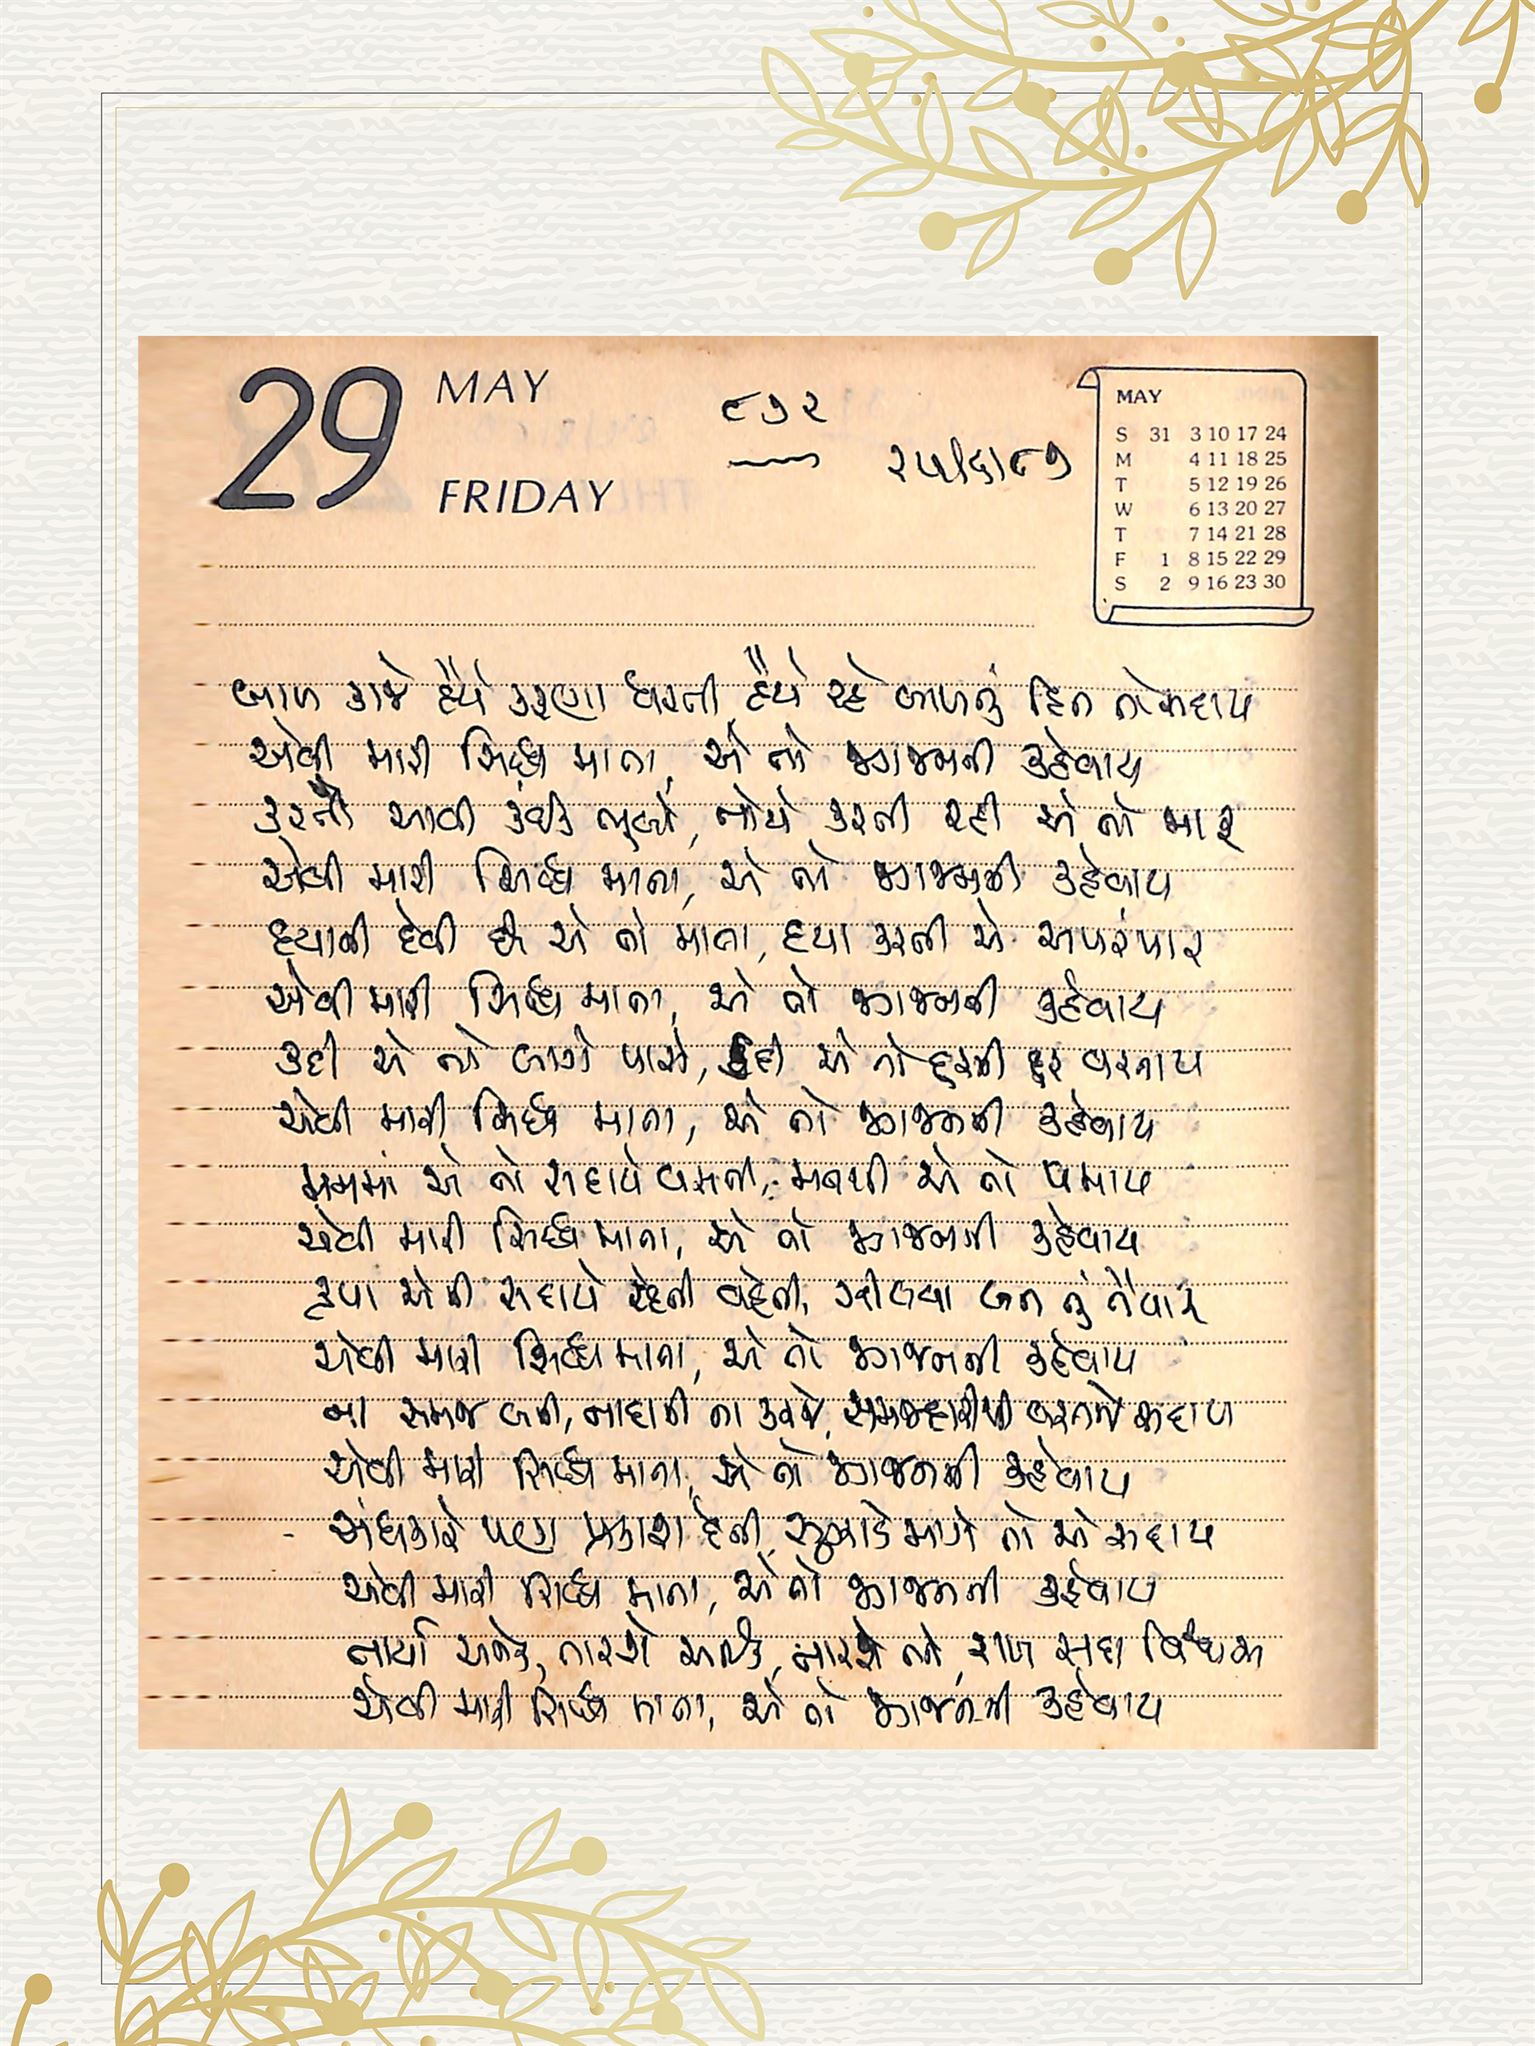 29 MAY
FRIDAY
૮૭૨
૨૫/૬/૮૭
MAY
S 31 3 10 17 24
M 4 11 18 25
T 5 12 19 26
W 6 13 20 27
T 7 14 21 28
F 1 8 15 22 29
S 2 9 16 23 30
બાળ કાજે હૈયે કરુણા ધરતી, હૈયે રહે બાળનું હિત તો સદાય
એવી મારી સિધ્ધ માતા, એ તો જાજમની કહેવાય
કરતો આવી કંઈક ભૂલો, તોયે કરતી રહી એ તો માફ
એવી મારી સિધ્ધ માતા, એ તો જાજમની કહેવાય
દયાળી દેવી છે એ તો માતા, દયા કરતી એ અપરંપાર
એવી મારી સિધ્ધ માતા, એ તો જાજમની કહેવાય
કદી એ તો લાગે પાસે, કદી એ તો દૂરની દૂર વરતાય
એવી મારી સિધ્ધ માતા, એ તો જાજમની કહેવાય
મનમાં એ તો સદાયે વસતી, મનથી એ તો પમાય
એવી મારી સિધ્ધ માતા, એ તો જાજમની કહેવાય
કૃપા એની સદાયે રહેતી વહેતી, ઝીલવા બન તું તૈયાર
એવી મારી સિધ્ધ માતા, એ તો જાજમની કહેવાય
ના સમજ બની, નાદાની ના કરજે, સમજદારીથી વરતજે સદાય
એવી મારી સિધ્ધ માતા, એ તો જાજમની કહેવાય
અંધકારે પણ પ્રકાશ દેતી, સુઝાડે માર્ગ તો એ સદાય
એવી મારી સિધ્ધ માતા, એ તો જાજમની કહેવાય
તાર્યા અનેક, તારશે અનેક, તારશે તને, રાખ સદા વિશ્વાસ
એવી મારી સિધ્ધ માતા, એ તો જાજમની કહેવાય